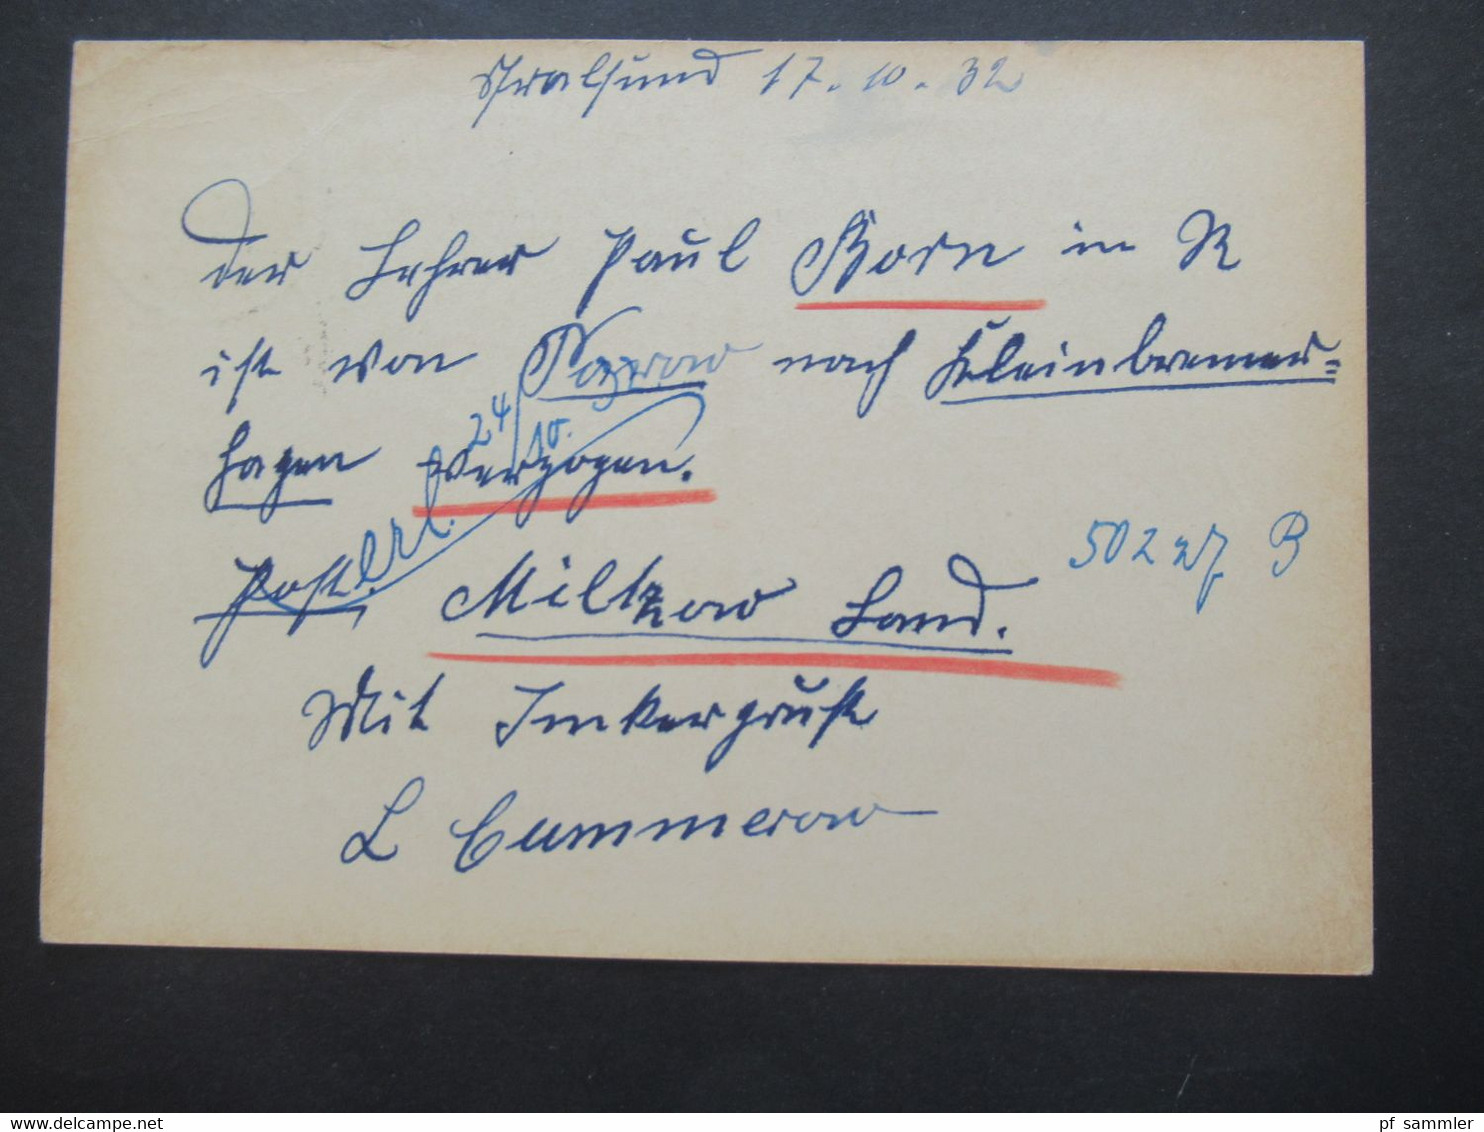 Stralsund 17.10.32
Der Lehrer Paul Born in R
ist von nach Kleinbremer=
hagen verzogen.
24/10.
erl.
Post. Miltzow Land.
502 B
Mit Imkergruß
L Cummerow
delcampe.net
pf sammler